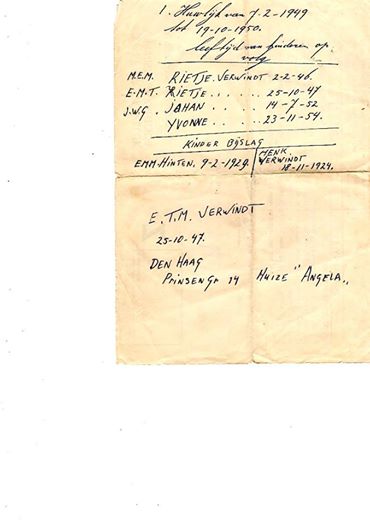 1. Huwlijk van 7-2-1949
tot 19-10-1950.
leeftijd van kinderen op-
volg
M.E.M. RIETJE. VERWINDT 2-2-46.
E.M.T. RIETJE..... 25-10-47
J.W.G. JOHAN .... 14-7-52
YVONNE.... 23-11-54.
KINDER BIJSLAG
EMM-HINTEN. 9-2-1929.
HENK.
VERWINDT
18-11-1924.
E.T.M. VERWINDT
25-10-47.
DEN HAAG
PRINSENGR 14 HUIZE "ANGELA„